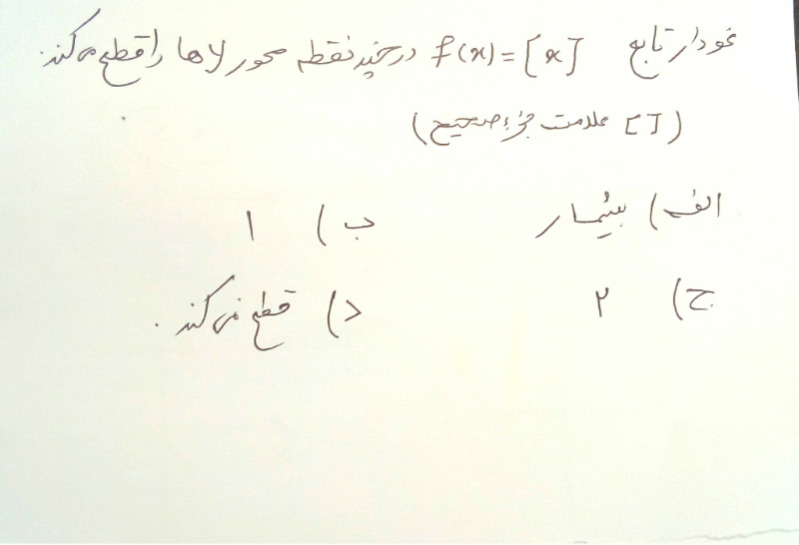 نمودار تابع f(x)=[x] در چند نقطه محور yها را قطع می‌کند.
([ ] علامت جزء صحیح)
الف) بیشمار ب) ۱
ج) ۲ د) قطع نمی‌کند.